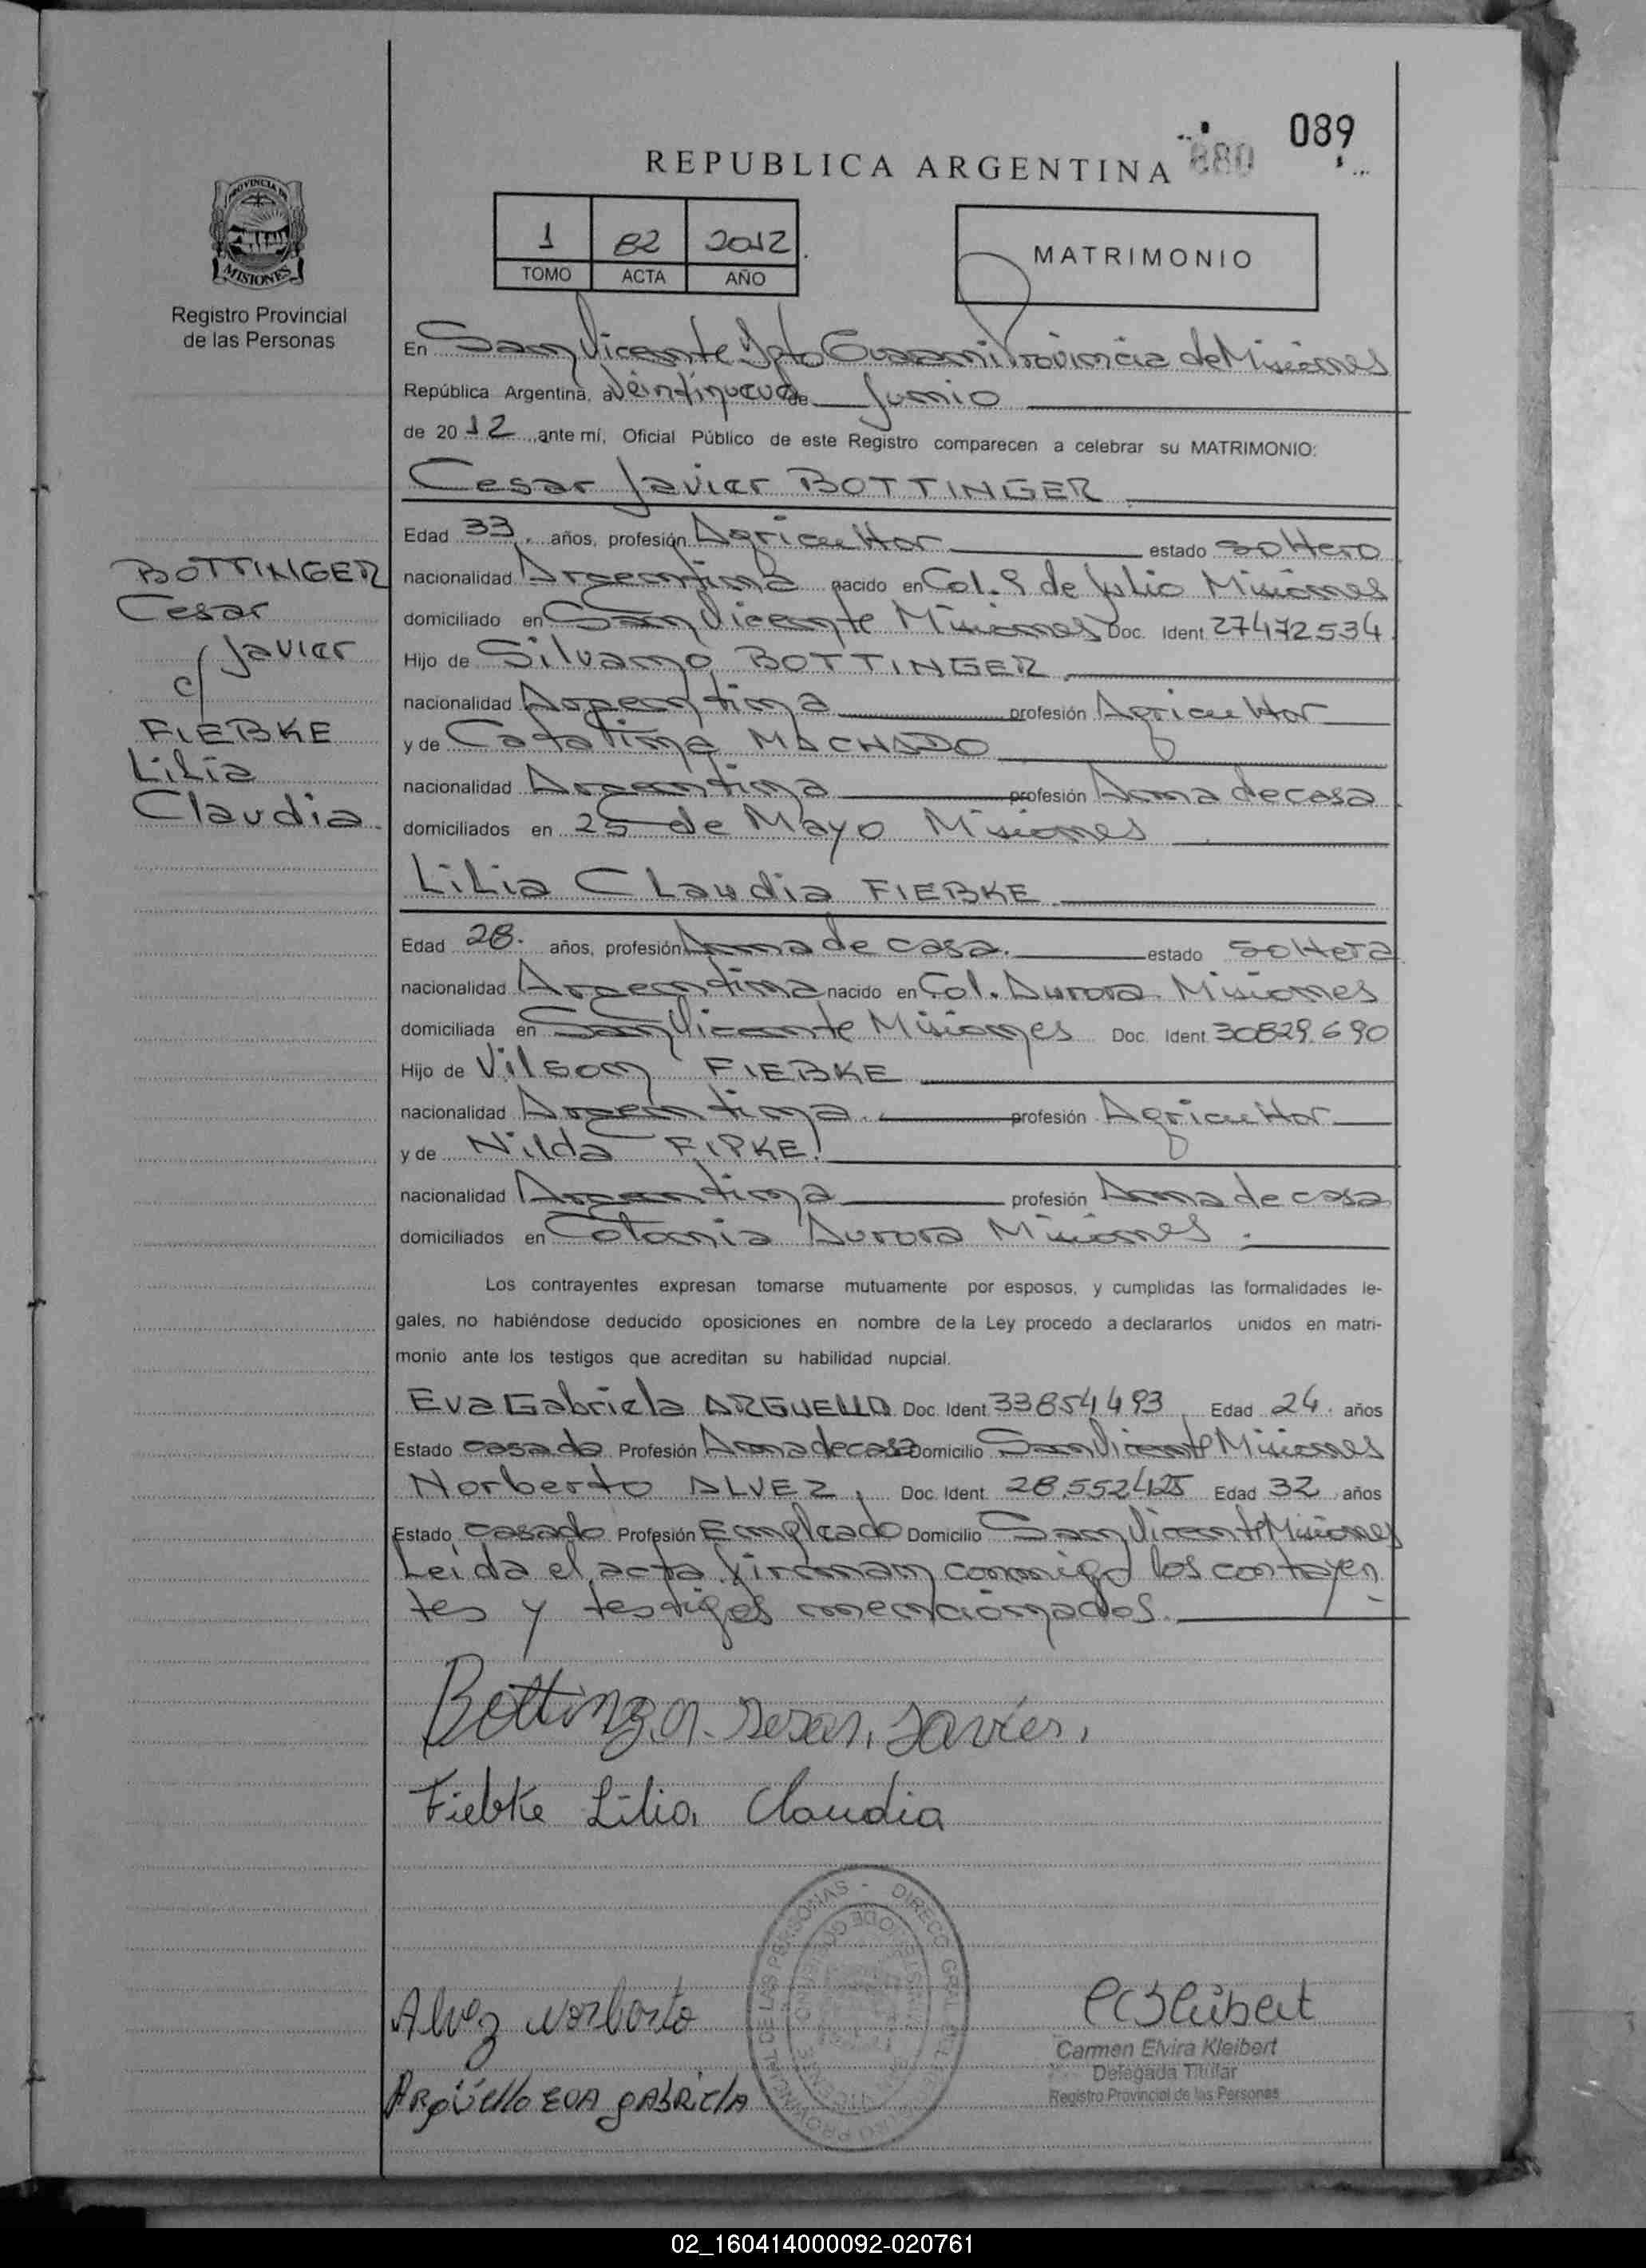 089
REPUBLICA ARGENTINA 880
1 82 2012
TOMO ACTA AÑO
MATRIMONIO
PROVINCIA DE
MISIONES
Registro Provincial
de las Personas
En San Vicente Dpto Guarani Provincia de Misiones
República Argentina, a Veintinueve de Junio
de 2012, ante mí, Oficial Público de este Registro comparecen a celebrar su MATRIMONIO:
Cesar Javier BOTTINGER
Edad 33, años, profesión Agricultor estado soltero
nacionalidad Argentina nacido en Col. 9 de Julio Misiones
domiciliado en San Vicente Misiones Doc. Ident. 27472534
Hijo de Silvano BOTTINGER
nacionalidad Argentina profesión Agricultor
y de Catalina MACHADO
nacionalidad Argentina profesión Ama de casa
domiciliados en 25 de Mayo Misiones
BOTTINGER
Cesar
Javier
c/
FIEBKE
Lilia
Claudia.
Lilia Claudia FIEBKE
Edad 28. años, profesión Ama de casa. estado soltera
nacionalidad Argentina nacido en Col. Aurora Misiones
domiciliada en San Vicente Misiones Doc. Ident. 30829.690
Hijo de Vilson FIEBKE
nacionalidad Argentina. profesión Agricultor
y de Nilda FIPKE.
nacionalidad Argentina profesión Ama de casa
domiciliados en Colonia Aurora Misiones.
Los contrayentes expresan tomarse mutuamente por esposos, y cumplidas las formalidades le-
gales, no habiéndose deducido oposiciones en nombre de la Ley procedo a declararlos unidos en matri-
monio ante los testigos que acreditan su habilidad nupcial.
Eva Gabriela ARGUELLO Doc. Ident. 33854493 Edad 24. años
Estado casada Profesión Ama de casa Domicilio San Vicente Misiones
Norberto ALVEZ, Doc. Ident. 28.552425 Edad 32 años
Estado casado Profesión Empleado Domicilio San Vicente Misiones
Leida el acta firman conmigo los contayen
tes y testigos mencionados.
Bottinger Sesar, Javier.
Fiebke Lilia Claudia
Alvez Norberto
Argüello EVA gabriela
Carmen Elvira Kleibert
Delegada Titular
Registro Provincial de las Personas
02_160414000092-020761